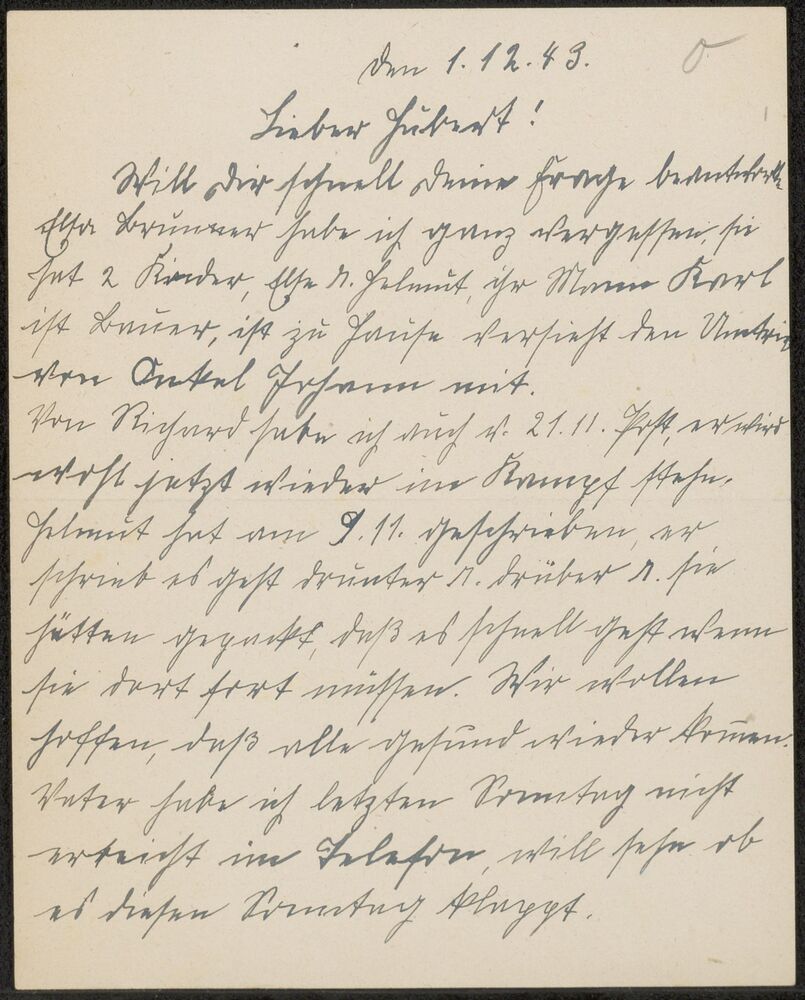 Den 1.12.43.
Lieber Hubert!
Will Dir schnell Deine Frage beantwort.
Elsa Brunner habe ich ganz vergessen, sie
hat 2 Kinder, Else u. Helmut, ihr Mann Karl
ist Bauer, ist zu Hause versieht den
von Onkel Johann mit.
Von Richard habe ich auch v. 21.11. Post, er wird
wohl jetzt wieder im Kampf stehn.
Helmut hat am 9.11. geschrieben, er
schrieb es geht drunter u. drüber u. sie
hätten gepackt, daß es schnell geht wenn
sie dort fort müssen. Wir wollen
hoffen, daß alle gesund wieder kom̅en.
Vater habe ich letzten Sonntag nicht
erreicht im Telefon, will sehn ob
es diesen Sonntag klappt.